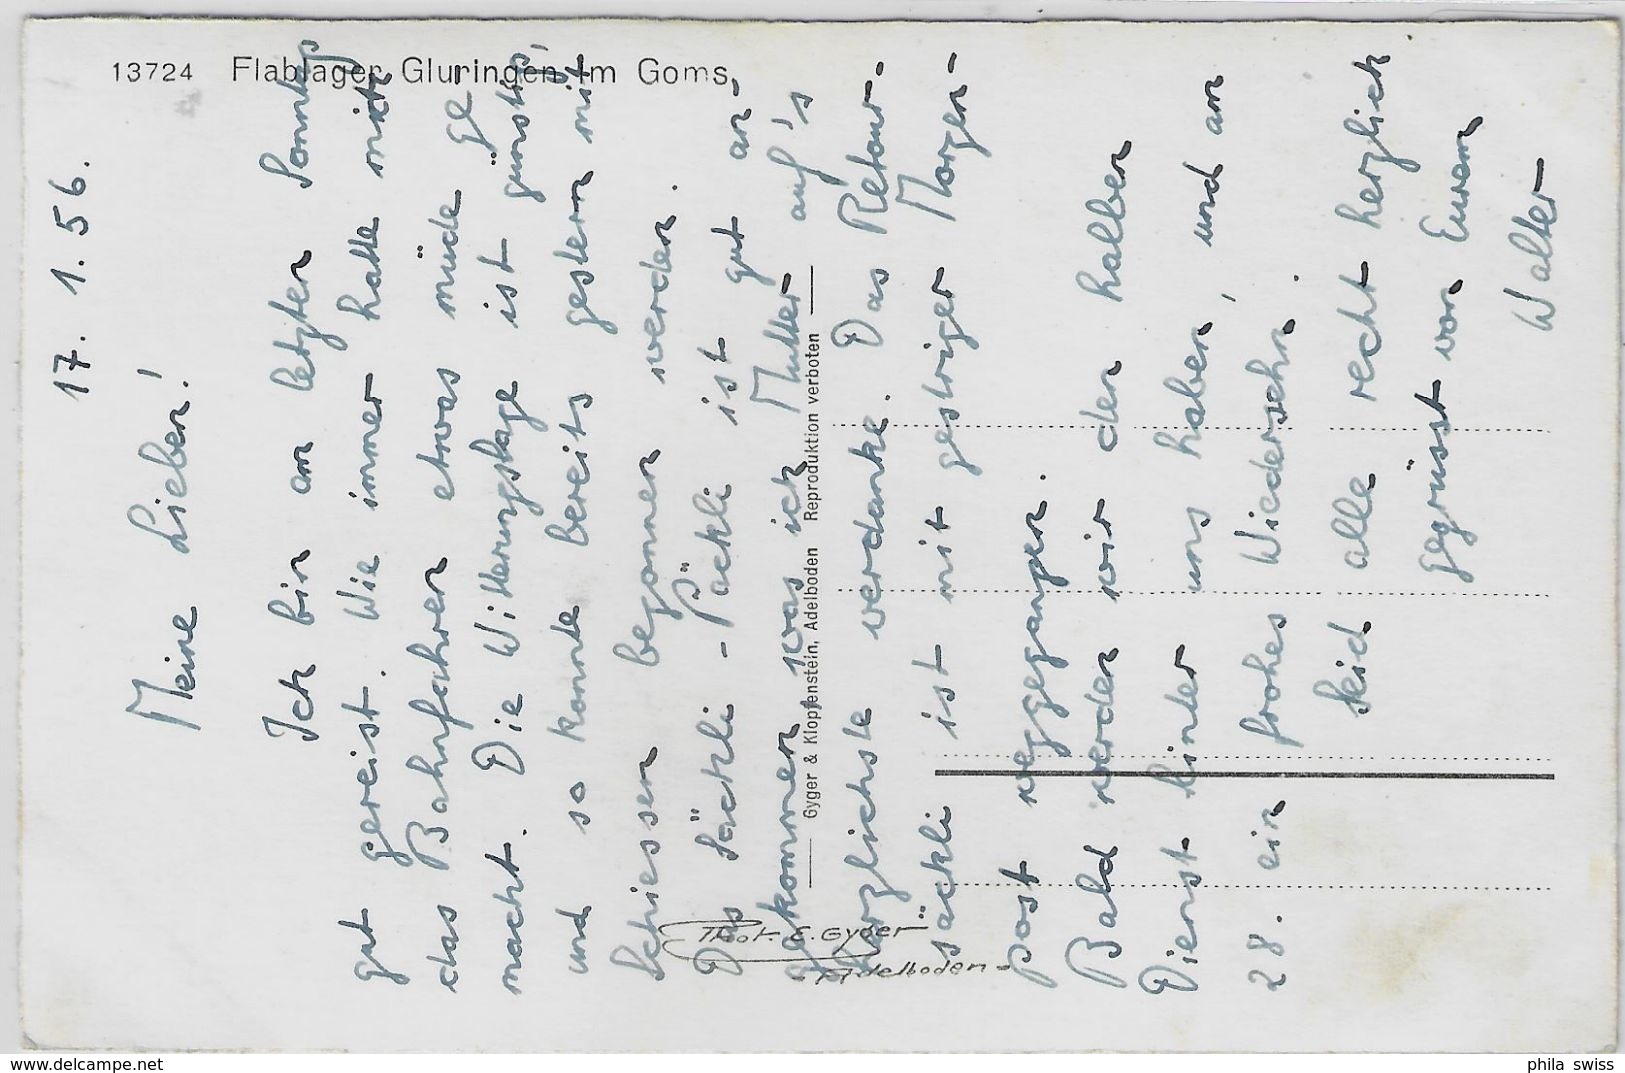 13724 Flablager Gluringen im Goms
17. 1. 56.
Meine Lieben!
Ich bin am letzten Sonntag
gut gereist. Wie immer hatte mich
das Bahnfahren etwas müde ge-
macht. Die Witterungslage ist günstig,
und so konnte bereits gestern mit
Schiessen begonnen werden.
Das Säckli-Päckli ist gut an-
gekommen was ich Mutter auf's
herzlichste verdanke. Das Retour-
säckli ist mit gestriger Morgen-
post weggegangen.
Bald werden wir den halben
Dienst hinter uns haben, und am
28. ein frohes Wiedersehn.
Seid alle recht herzlich
gegrüsst von Eurem
Walter
Gyger & Klopfenstein, Adelboden Reproduktion verboten
Phot. E. Gyger
- Adelboden -
www.delcampe.net
phila swiss